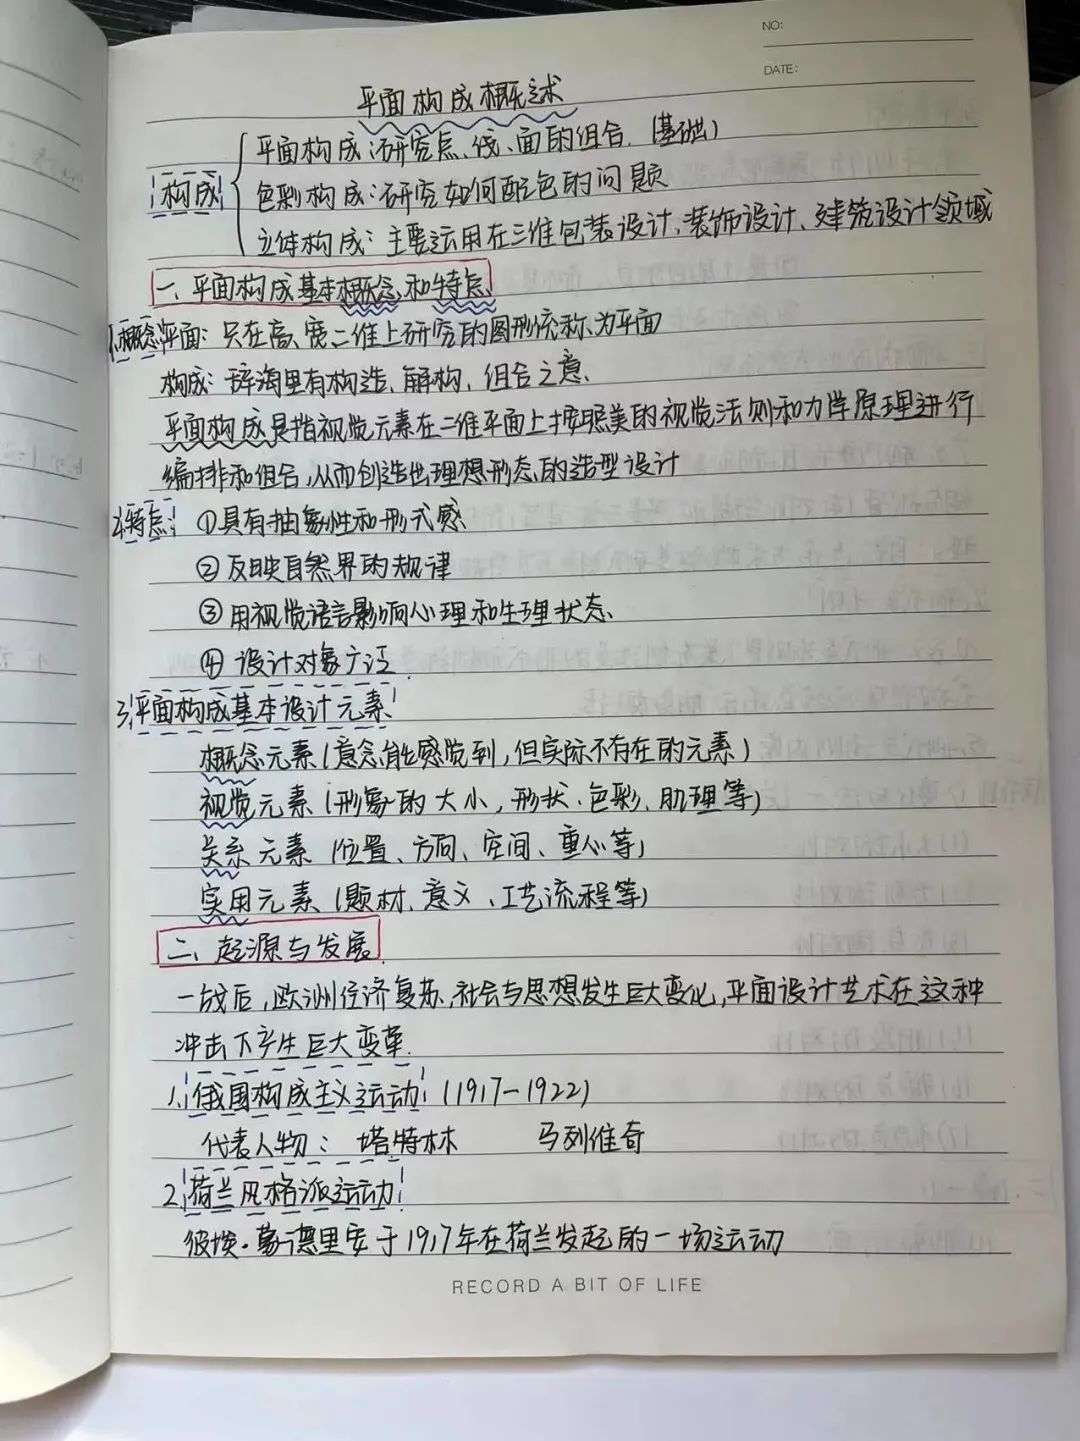 NO:
DATE:
平面构成概述
构成
平面构成:研究点、线、面的组合.(基础)
色彩构成:研究如何配色的问题
立体构成:主要运用在三维包装设计、装饰设计、建筑设计领域
一、平面构成基本概念和特点
1.概念 平面:只在高、宽二维上研究的图形统称为平面
构成:辞海里有构造、解构、组合之意、
平面构成是指视觉元素在二维平面上按照美的视觉法则和力学原理进行
编排和组合,从而创造出理想形态的造型设计
2.特点: ①具有抽象性和形式感
②反映自然界的规律
③用视觉语言影响心理和生理状态、
④设计对象广泛
3.平面构成基本设计元素
概念元素(意念能感觉到,但实际不存在的元素)
视觉元素(形象的大小,形状、色彩、肌理等)
关系元素(位置、方向、空间、重心等)
实用元素(题材、意义、工艺流程等)
二、起源与发展
一战后,欧洲经济复苏、社会与思想发生巨大变化,平面设计艺术在这种
冲击下产生巨大变革.
1.俄国构成主义运动(1917-1922)
代表人物: 塔特林 马列维奇
2.荷兰风格派运动
彼埃·蒙德里安于1917年在荷兰发起的一场运动
RECORD A BIT OF LIFE